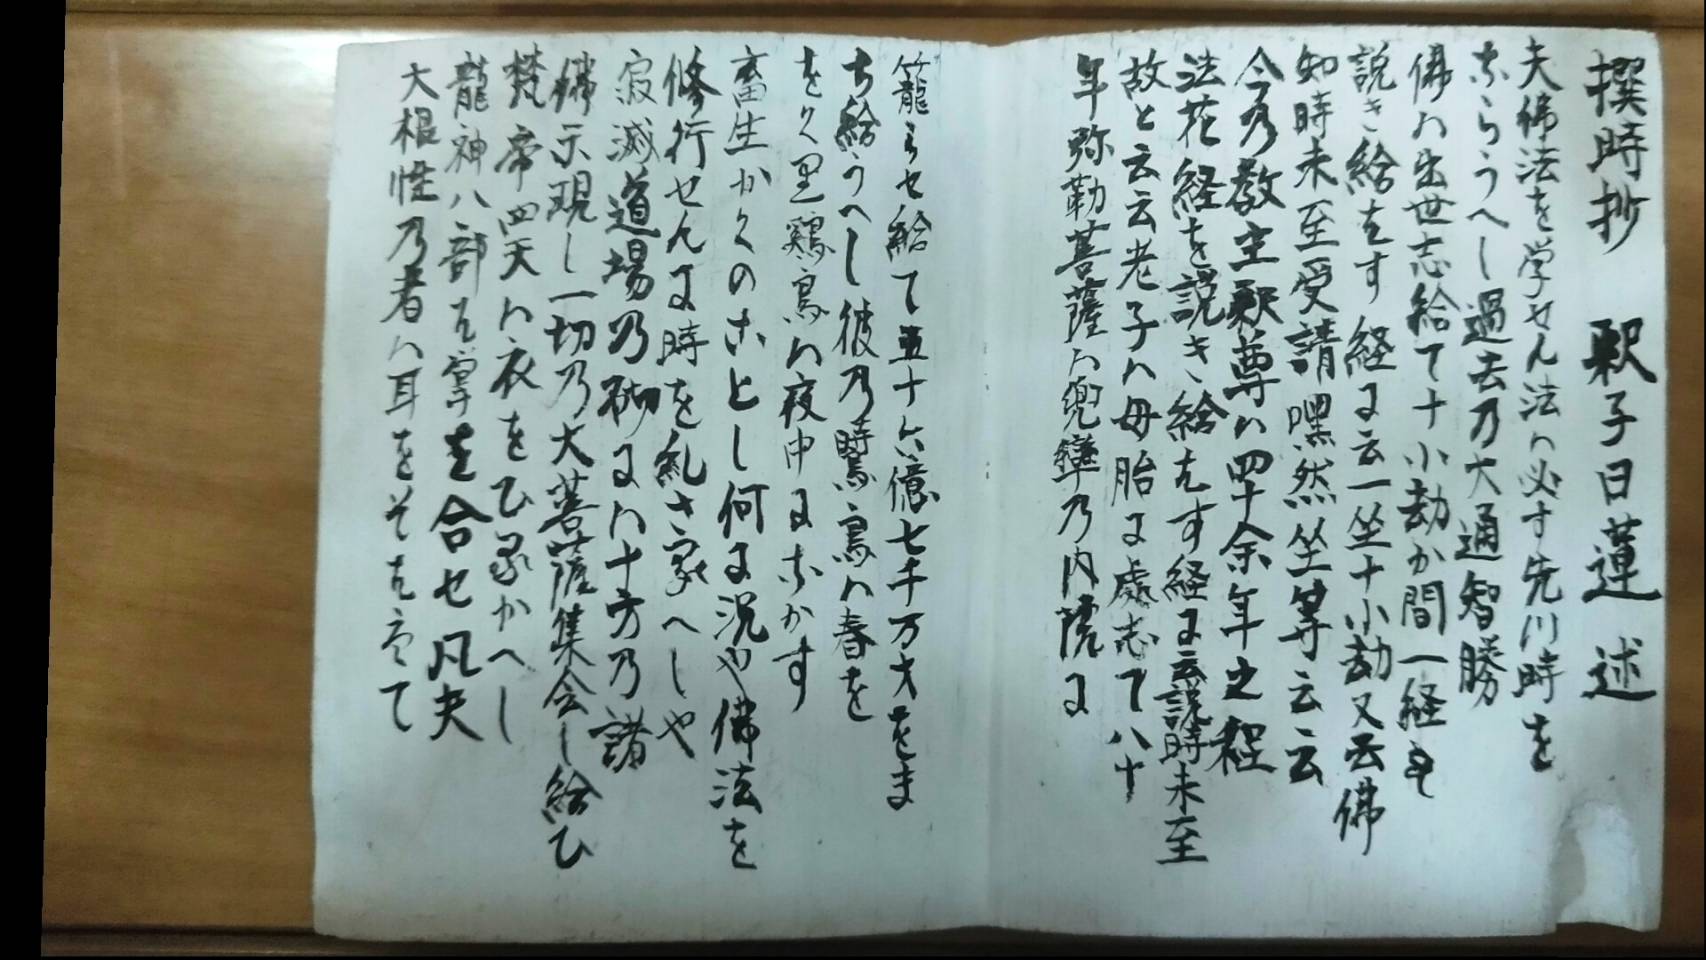 撰時抄 釈子日蓮 述
夫佛法を学せん法ハ必す先川時を
ならうへし過去乃大通智勝
佛ハ出世志給て十小劫か間一経も
説き給ハす経に云一坐十小劫又云佛
知時未至受請黙然坐等云云
今乃教主釈尊ハ四十余年之程
法花経を説き給ハす経に云説時未至
故と云云老子ハ母胎に處志て八十
年弥勒菩薩ハ兜率乃内院に
籠らせ給て五十六億七千万才をま
ち給うへし彼乃時鳥ハ春を
をくり鶏鳥ハ夜中になかす
畜生かくのことし何に況や佛法を
修行せんに時を糺さ家へしや
寂滅道場乃砌にハ十方乃諸
佛示現し一切乃大菩薩集会し給ひ
梵帝四天ハ衣をひるかへし
龍神八部ハ掌を合せ凡夫
大根性乃者ハ耳をそはたて